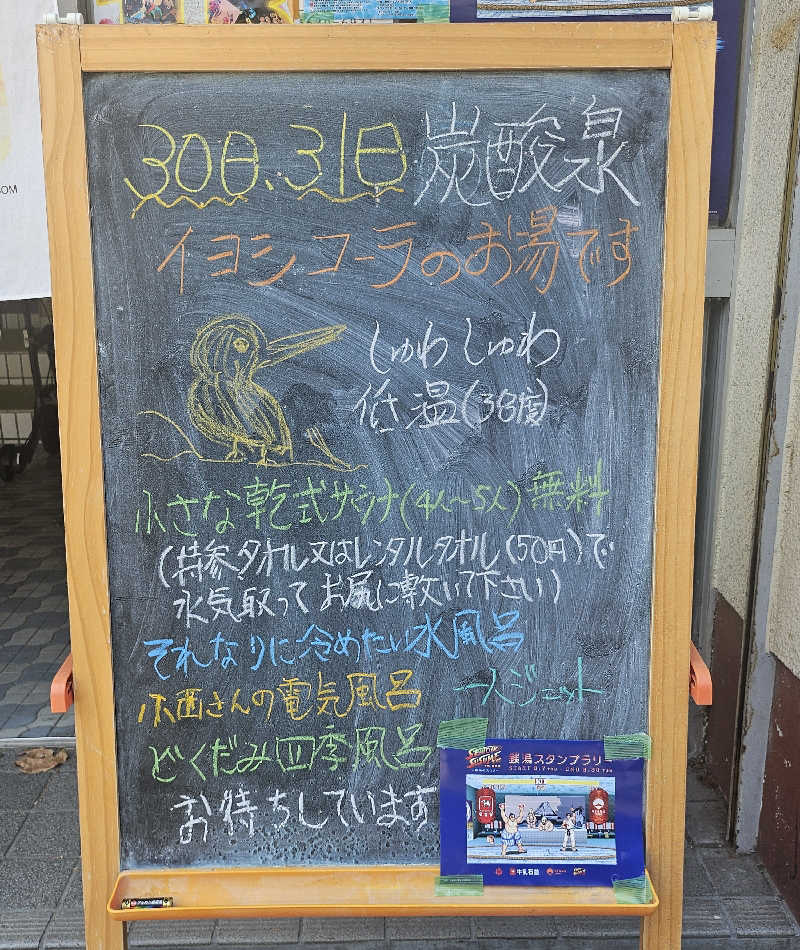 30日、31日 炭酸泉
イヨシコーラのお湯です
しゅわしゅわ
低温(38度)
小さな乾式サウナ(4人〜5人)無料
(持参タオル又はレンタルタオル(50円)で
水気取ってお尻に敷いて下さい)
それなりに冷めたい水風呂
小西さんの電気風呂 一人ジェット
どくだみ四季風呂
お待ちしています
銭湯スタンプラリー
牛乳石鹼